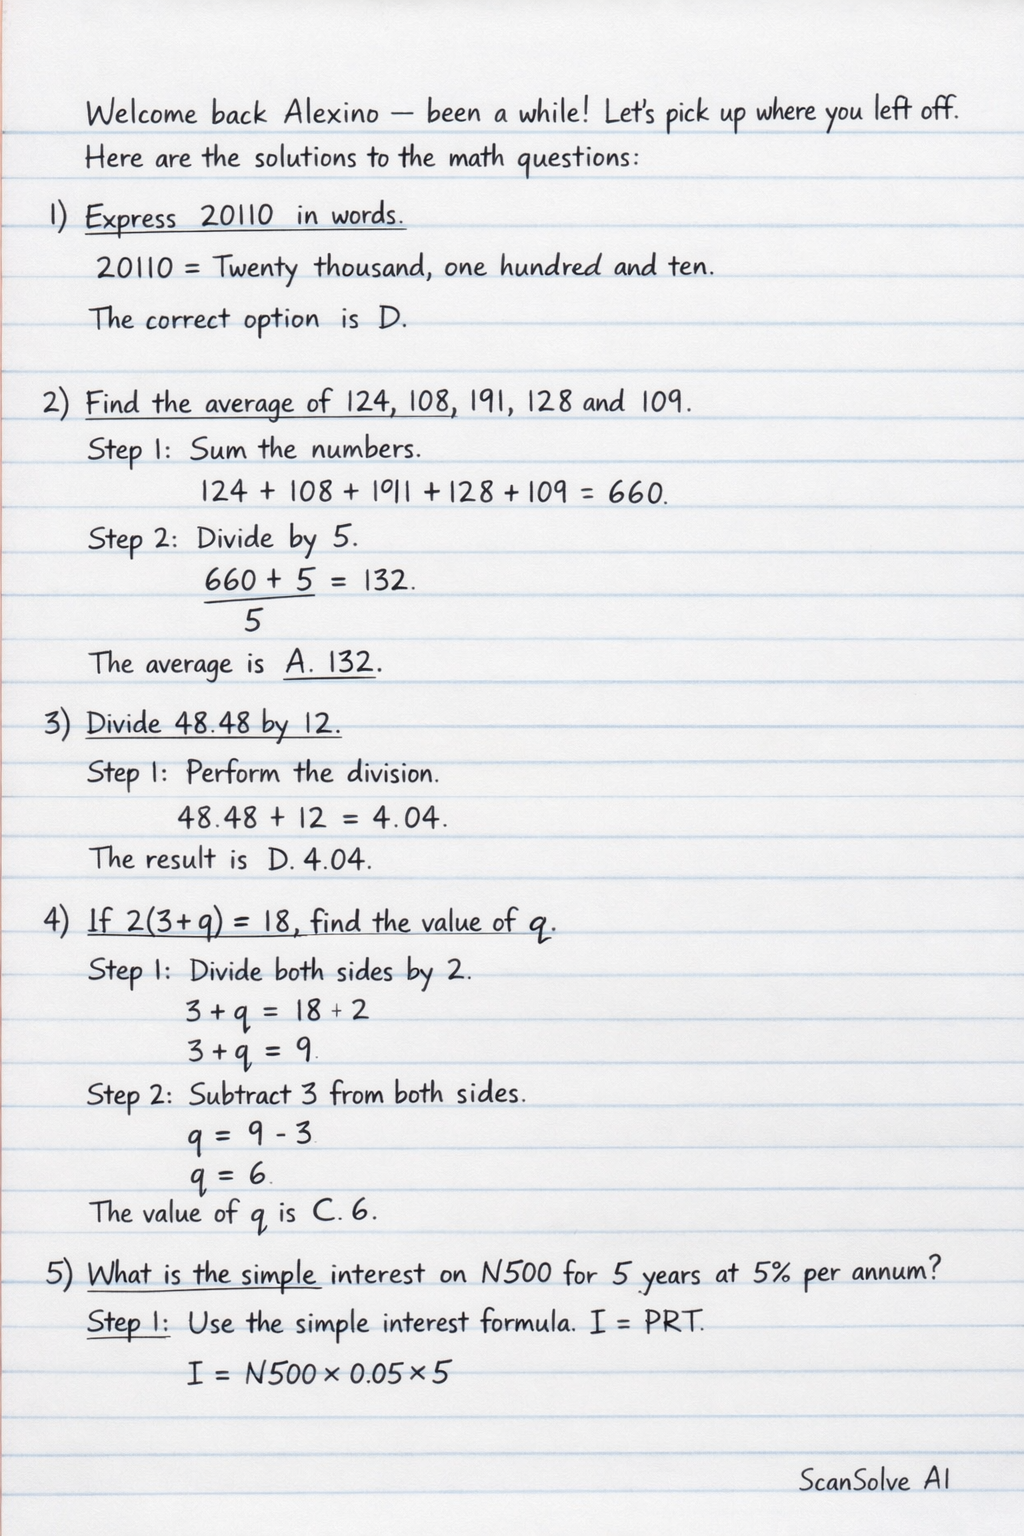 Welcome back Alexino — been a while! Let's pick up where you left off.
Here are the solutions to the math questions:
1) Express 20110 in words.
20110 = Twenty thousand, one hundred and ten.
The correct option is D.
2) Find the average of 124, 108, 191, 128 and 109.
Step 1: Sum the numbers.
124 + 108 + 1911 + 128 + 109 = 660.
Step 2: Divide by 5.
660 + 5 = 132.
5
The average is A. 132.
3) Divide 48.48 by 12.
Step 1: Perform the division.
48.48 + 12 = 4.04.
The result is D. 4.04.
4) If 2(3+q) = 18, find the value of q.
Step 1: Divide both sides by 2.
3 + q = 18 + 2
3 + q = 9.
Step 2: Subtract 3 from both sides.
q = 9 - 3
q = 6.
The value of q is C. 6.
5) What is the simple interest on N500 for 5 years at 5% per annum?
Step 1: Use the simple interest formula. I = PRT.
I = N500 × 0.05 × 5
ScanSolve AI